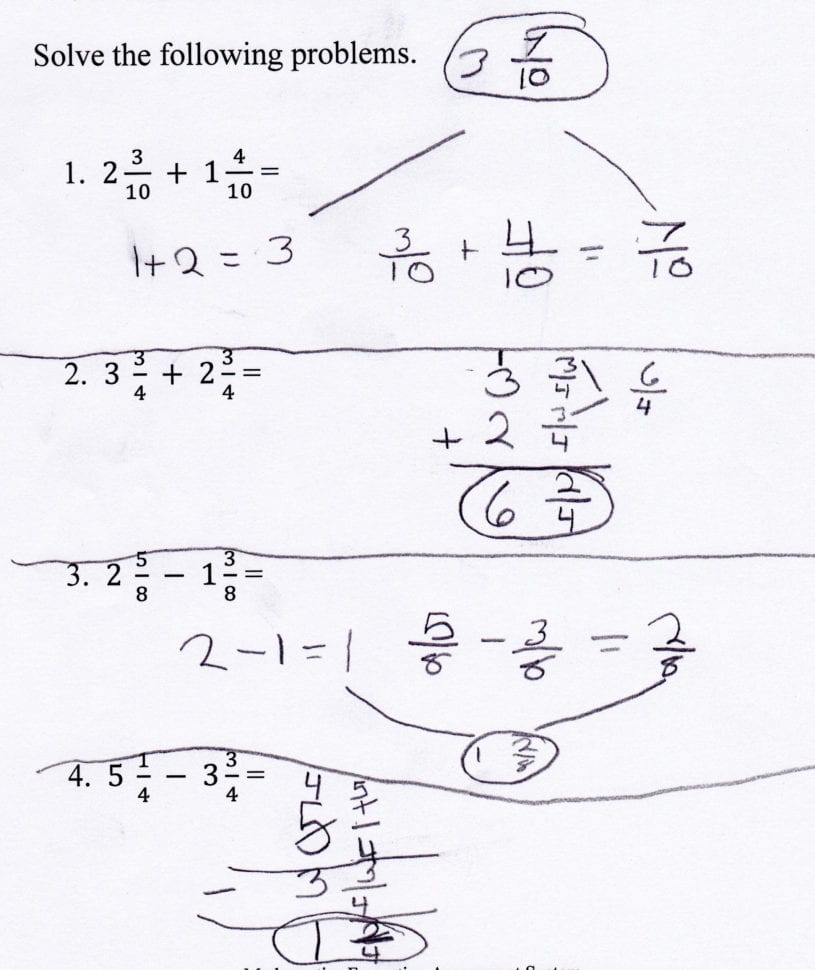 Solve the following problems.
3 7/10
1. 2 3/10 + 1 4/10 =
1+2 = 3   3/10 + 4/10 = 7/10
2. 3 3/4 + 2 3/4 =
1
3 3/4   6/4
+ 2 3/4
6 2/4
3. 2 5/8 − 1 3/8 =
2-1=1   5/8 - 3/8 = 2/8
1 2/8
4. 5 1/4 − 3 3/4 =
4 5
5 1/4
- 3 3/4
1 2/4